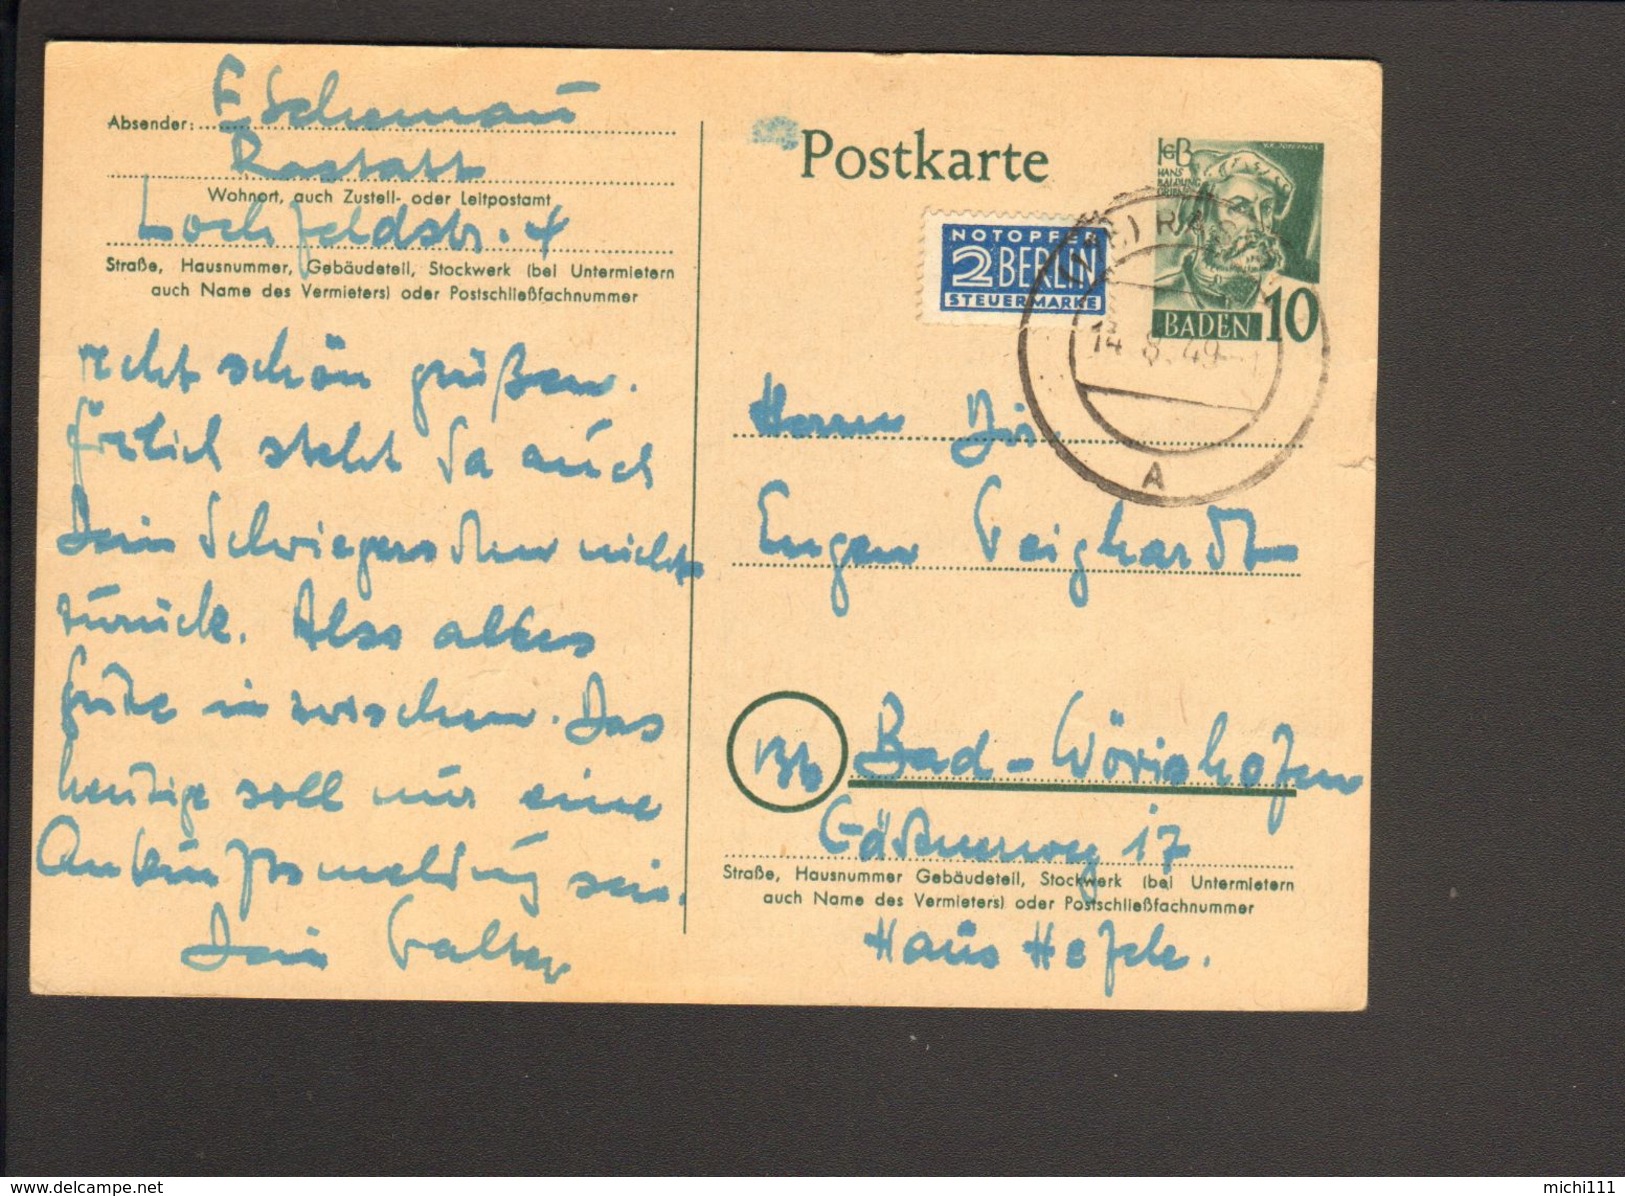 Absender:
Rastatt
Wohnort, auch Zustell- oder Leitpostamt
Lochfeldstr. 4
Straße, Hausnummer, Gebäudeteil, Stockwerk (bei Untermietern
auch Name des Vermieters) oder Postschließfachnummer
recht schön grüßen.
steht Ja auch
Dein Schwiegersohn nicht
zurück. Also alles
Gute inzwischen. Das
heutige soll nur eine
Ankunftsmeldung sein.
Dein Walter
Postkarte
NOTOPFER
2 BERLIN
STEUERMARKE
HGB
HANS
BALDUNG
GRIEN
BADEN 10
14 8. 49
A
Herrn Dir.
Eugen
Bad-Wörishofen
Gärtnerweg 17
Straße, Hausnummer Gebäudeteil, Stockwerk (bei Untermietern
auch Name des Vermieters) oder Postschließfachnummer
Haus Hefele.
www.delcampe.net
michi111